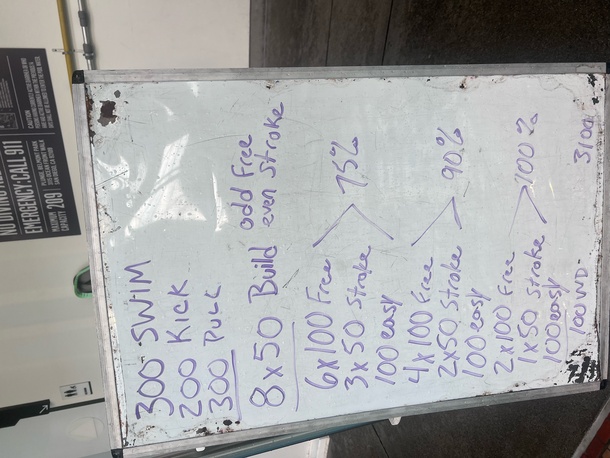 300 SWIM
200 Kick
300 Pull
8 x 50 Build odd Free
even stroke
6 x 100 Free
3 x 50 Stroke > 75%
100 easy
4 x 100 Free
2 x 50 Stroke > 90%
100 easy
2 x 100 Free
1 x 50 stroke > 100%
100 easy
100 WD.
3100
EMERGENCY: CALL 911
MAXIMUM
CAPACITY 209